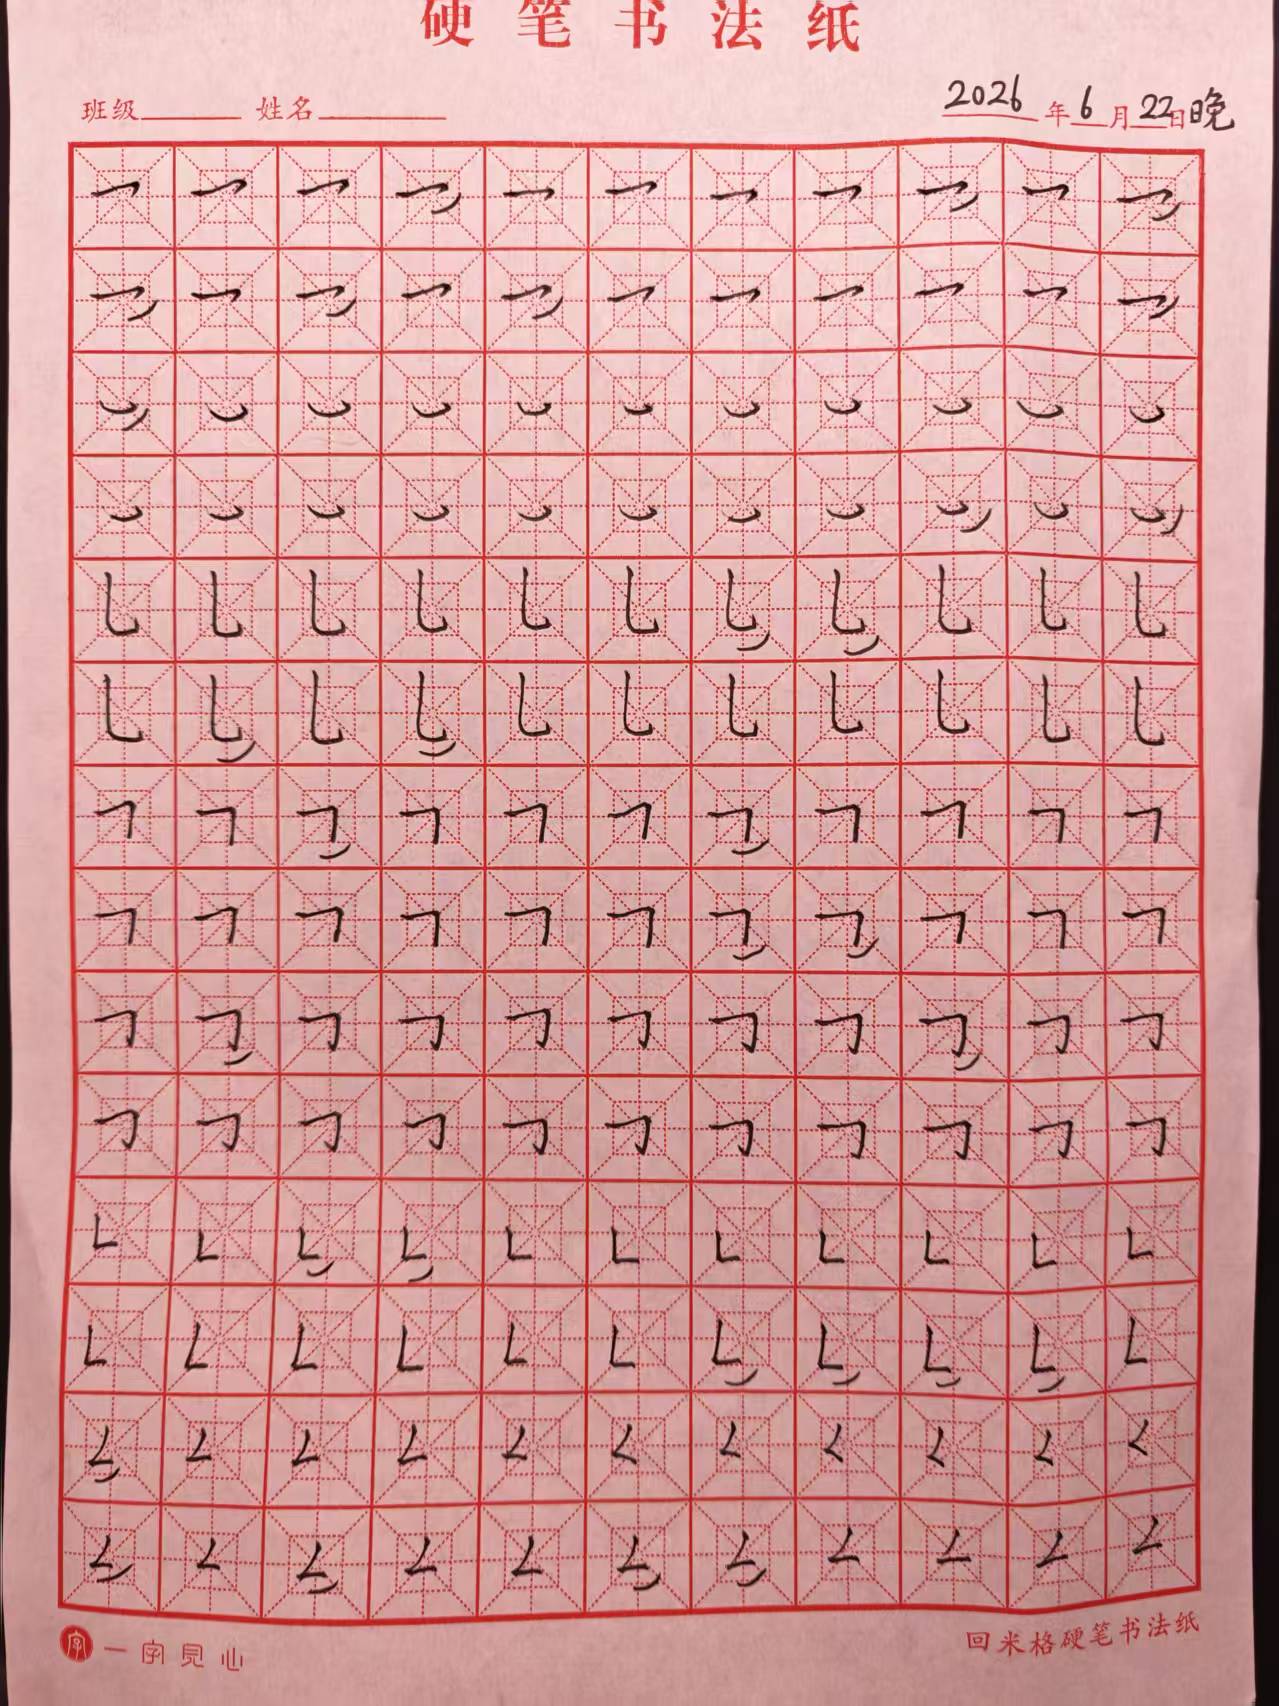 硬笔书法纸
班级 姓名 2026年6月22日晚
字 一字見心 回米格硬笔书法纸